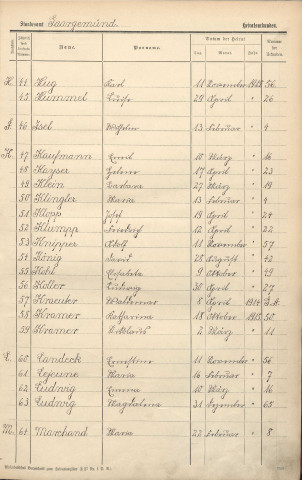 Standesamt Saargemünd Heiratsurkunden.
Name. Vorname.
Datum der Heirat
H. 44 Hug Karl 11 November 1913 56
45 Hummel 29 April " 26
J. 46 Isel Wilhelm 13 Februar " 4
K. 47 Kaufmann Emil 10 März " 16
48 Kayser 17 April " 23
49 Klein Barbara 27 März " 19
50 Klingler Maria 13 Februar " 4
51 Klopp Josef 19 April " 24
52 Klumpp Friedrich 12 April " 22
53 Knipper Adolf 11 November " 57
54 König David 28 August " 42
55 Kohl Elisabeth 9 Oktober " 49
56 Koller Ludwig 30 April " 27
57 Kraeuter Waldemar 8 April 1914
58 Kramer Katharina 18 Oktober 1913 50
59 Kramer Nikolaus 2 März " 11
L. 60 Landeck Ernestine 11 November " 56
61 Lejeune Maria 16 Februar " 7
62 Ludwig Emma 10 März " 16
63 Ludwig Magdalena 31 Dezember " 65
M. 64 Marchand Maria 22 Februar " 8